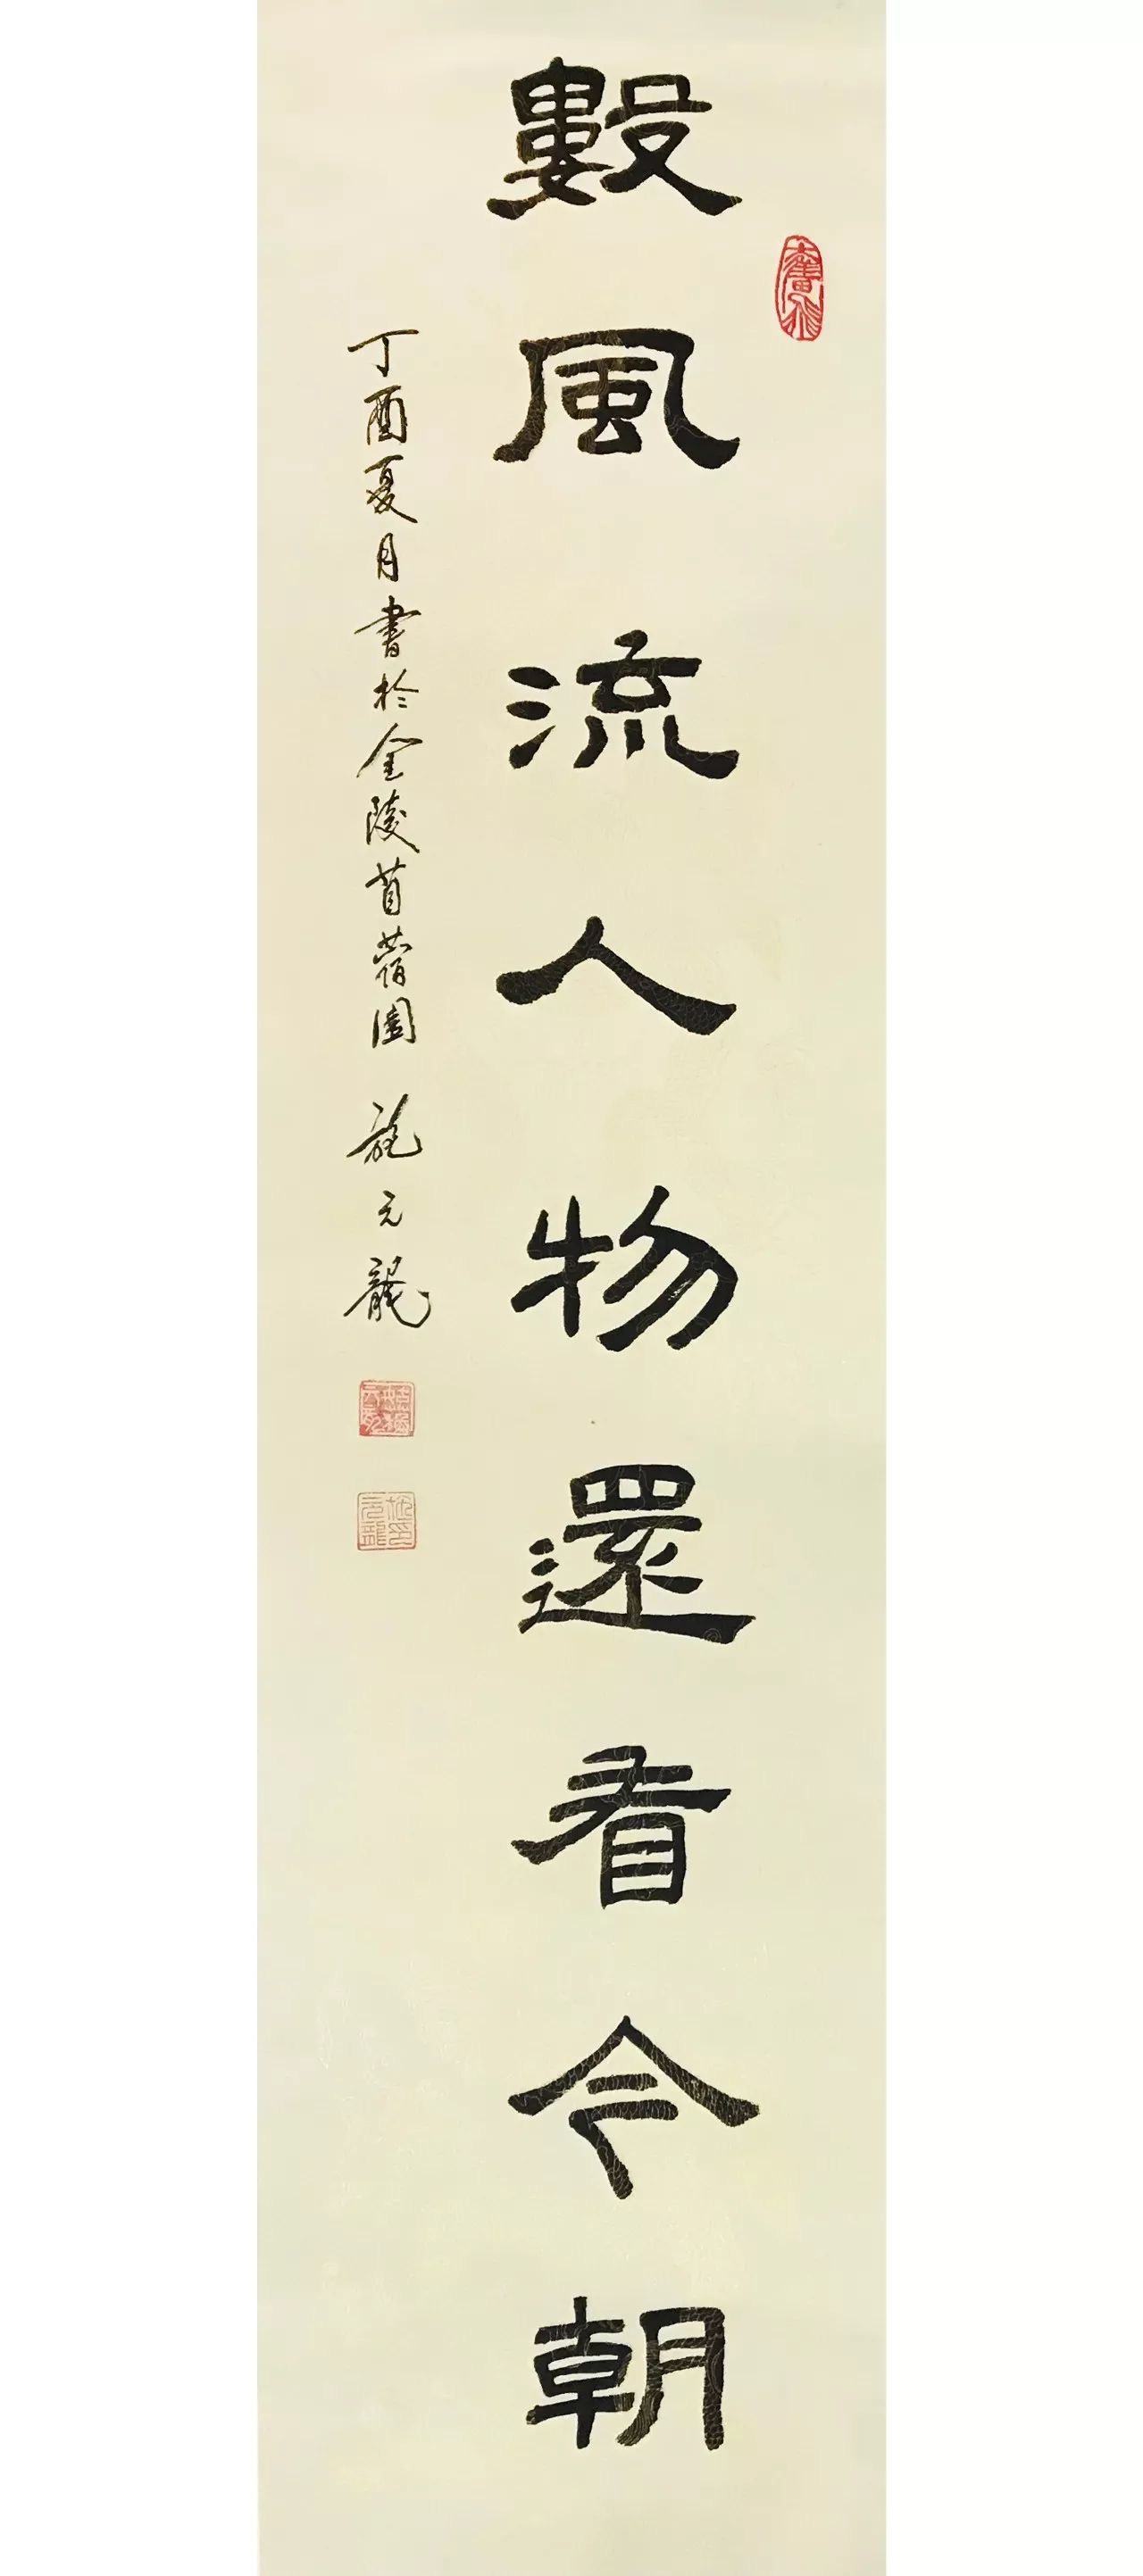 數風流人物還看今朝
丁酉夏月書於金陵苜蓿園 施元龍